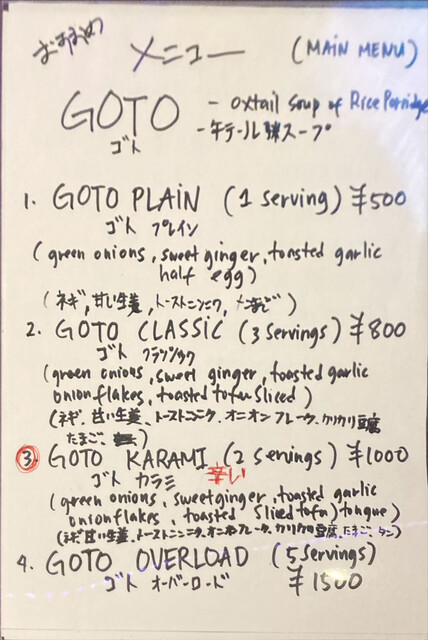 おすすめ
メニュー (MAIN MENU)
GOTO - oxtail soup of Rice Porridge
ゴト - 牛テール スープ
1. GOTO PLAIN (1 serving) ¥500
ゴト プレイン
(green onions, sweet ginger, toasted garlic
half egg)
(ネギ, 甘い生姜, トーストニンニク, たまご)
2. GOTO CLASSIC (3 servings) ¥800
ゴト クラシック
(green onions, sweet ginger, toasted garlic
onion flakes, toasted tofu sliced)
(ネギ, 甘い生姜, トーストニンニク, オニオンフレーク, カリカリ豆腐
たまご)
3 GOTO KARAMI (2 servings) ¥1000
ゴト カラミ 辛い
(green onions, sweet ginger, toasted garlic
onion flakes, toasted sliced tofu, tongue)
(ネギ, 甘い生姜, トーストニンニク, オニオンフレーク, カリカリ豆腐, たまご, タン)
4. GOTO OVERLOAD (5 servings)
ゴト オーバーロード ¥1500